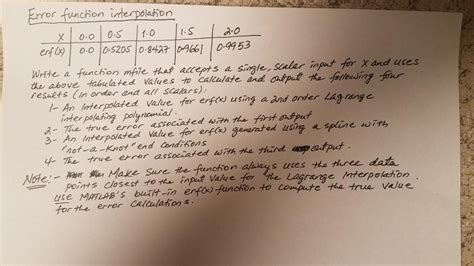 Error function interpolation
X 0.0 0.5 1.0 1.5 2.0
erf(x) 0.0 0.5205 0.8427 0.9661 0.9953
Write a function mfile that accepts a single, scalar input for X and uses
the above tabulated values to calculate and output the following four
results (in order and all scalars).
1- An Interpolated Value for erf(x) using a 2nd order Lagrange
interpolating polynomial.
2- The true error associated with the first output
3- An Interpolated Value for erf(x) generated using a spline with
"not-a-knot" end conditions
4- The true error associated with the third output.
Note:- Make Sure the function always uses the three data
points closest to the input value for the Lagrange Interpolation.
USE MATLAB's built-in erf(x) function to compute the true value
for the error calculations.